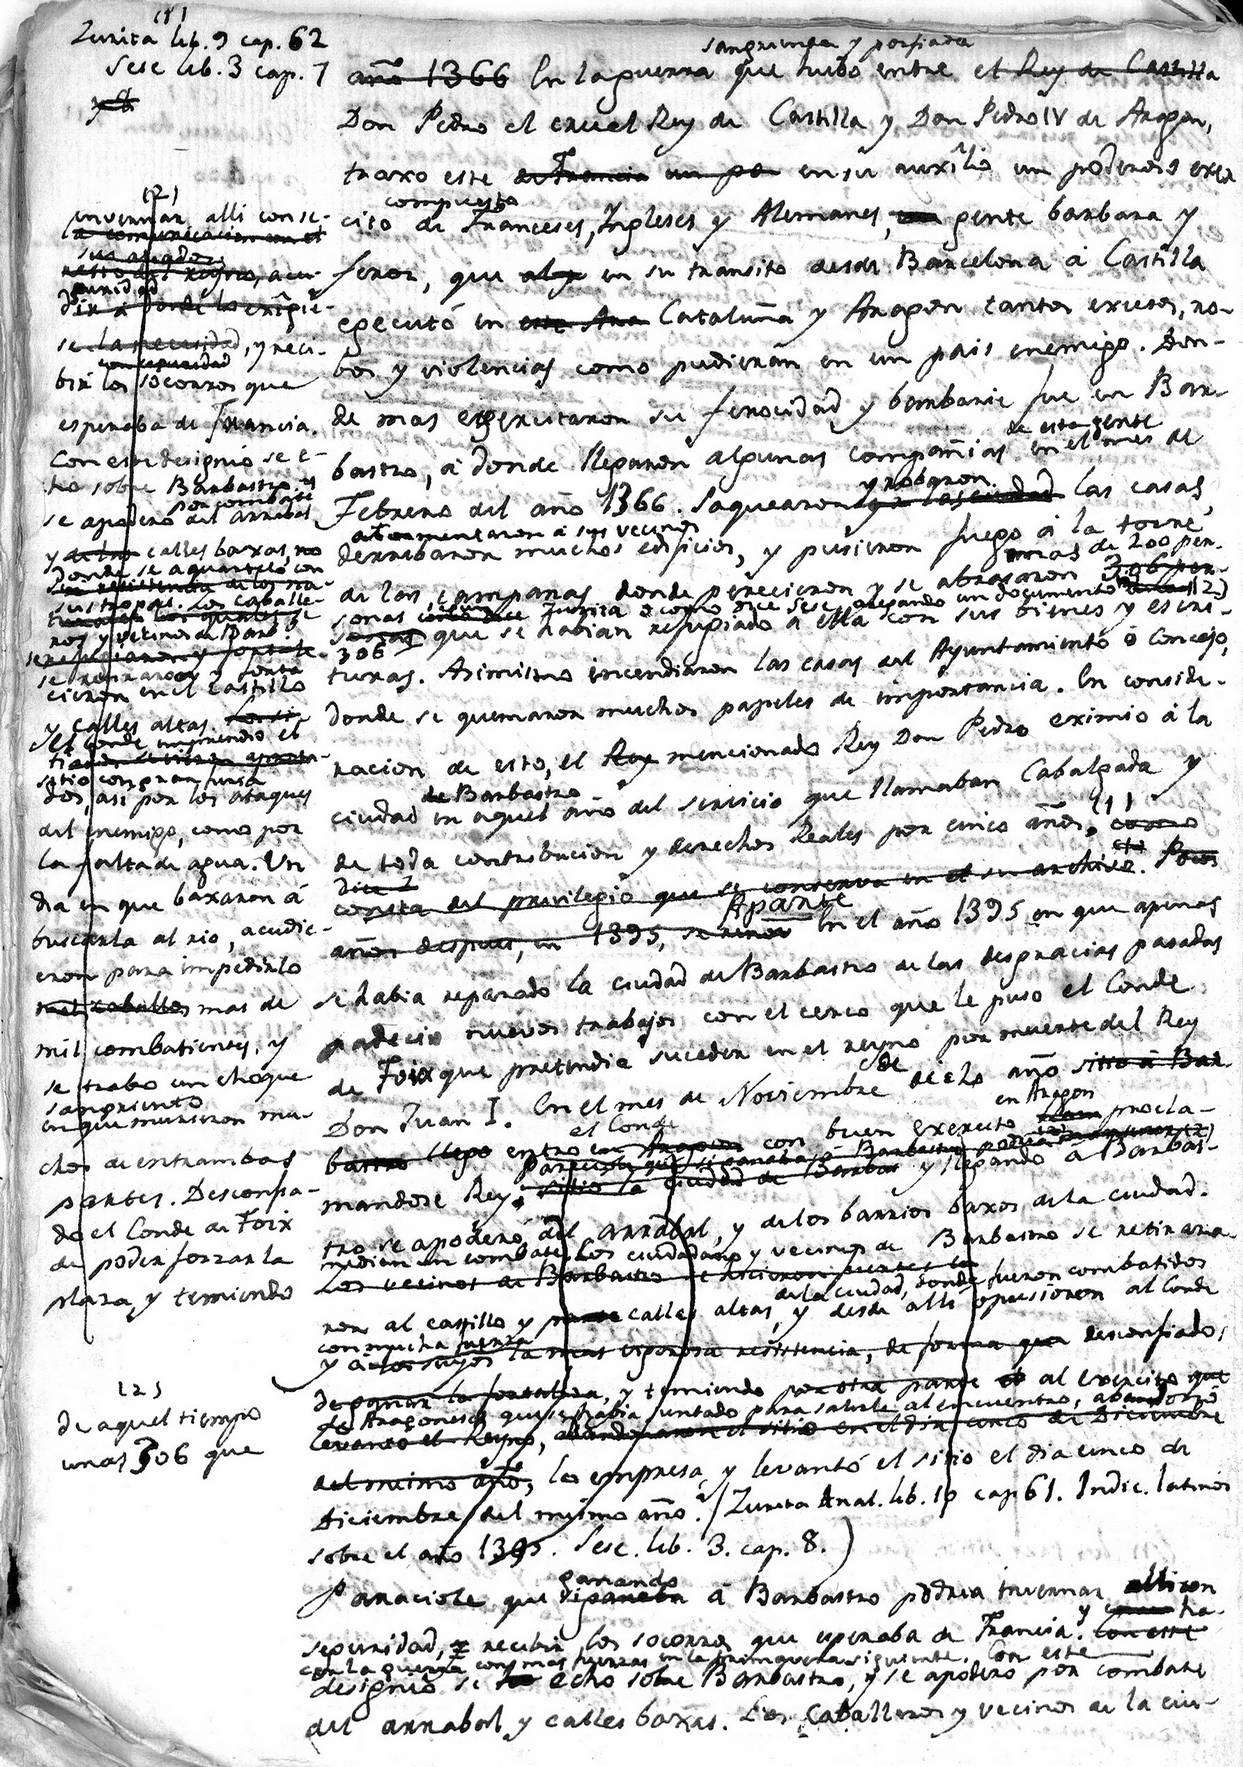 (1)
Zurita lib. 9 cap. 62
Sese lib. 3 cap. 7
y 8
sangrienta y porfiada
año 1366 En la guerra que hubo entre el Rey de Castilla
Don Pedro el cruel Rey de Castilla y Don Pedro IV de Aragon,
traxo este de Francia un po en su auxilio un poderoso exer
compuesto
cito de Franceses, Ingleses y Alemanes, gente barbara y
feroz, que en su transito desde Barcelona á Castilla
egecutó en este Ara Cataluña y Aragon tantos excesos, ro-
bos y violencias como pudieran en un pais enemigo. Don-
de mas egercitaron su ferocidad y barbarie fue en Bar-
de esta gente
bastro, á donde llegaron algunas compañias en el mes de
y robaron
Febrero del año 1366. Saquearon la ciudad las casas,
atormentaron á sus vecinos
derribaron muchos edificios, y pusieron fuego á la torre
mas de 200 per-
de las campanas, donde perecieron y se abrasaron 306 per-
sonas segun dice Zurita ó como dice Sese alegando un documento (2)
306 que se habian refugiado á ella con sus bienes y escri-
turas. Asimismo incendiaron las casas del Ayuntamiento ó Concejo,
donde se quemaron muchos papeles de importancia. En conside-
racion de esto, el Rey mencionado Rey Don Pedro eximio á la
de Barbastro
ciudad en aquel año del servicio que llamaban Cabalgada y
de toda contribucion y derechos Reales por cinco años, (1) como
consta del privilegio que se conserva en el su archivo. Pocos
Aparte
años despues, en 1395, se En el año 1395 en que apenas
se habia reparado la ciudad de Barbastro de las desgracias pasadas
padecio nuevos trabajos con el cerco que le puso el Conde
de Foix que pretendia suceder en el reyno por muerte del Rey
Don Juan I. En el mes de Noviembre de dicho año sitio á Bar
en Aragon
el Conde
bastro llego entro en Aragon con buen exercito procla-
mandose Rey, sitio la ciudad de Barbas y llegando á Barbas-
tro se apoderó del arrabal, y de los barrios baxos de la ciudad.
mediante un combate. Los ciudadanos y vecinos de Barbastro se retira
Los vecinos de Barbastro se hicieron fuertes
de la ciudad, donde fueron combatidos
ron al castillo y calles altas, y desde alli opusieron al Conde
con mucha fuerza
y a los suyos la mas vigorosa resistencia, de forma que desconfiados,
de ganar la fortaleza, y temiendo por otra parte al exercito que
de Aragoneses que se habia juntado para salirle al encuentro, abandonó
levantó el Reyno, abandonaron el sitio en el dia cinco de Diciembre
del mismo año, la empresa, y levantó el sitio el dia cinco de
Diciembre del mismo año. (Zurita Anal. lib. 10 cap 61. Indic. latinos
sobre el año 1395. Sese. lib. 3. cap. 8.)
ganando
Pareciole que á Barbastro podria invernar alli con
seguridad, recibir los socorros que esperaba de Francia. y ha-
cer la guerra con mas fuerzas en la primavera siguiente. Con este
designio se echo sobre Barbastro, y se apodero por combate
del arrabal y calles baxas. Los Caballeros y vecinos de la ciu-
(2)
invernar alli con se-
la comunicacion con el
resto del Reyno, acu-
guridad
dir á donde lo exigie-
se la necesidad, y reci-
con seguridad
bir los socorros que
esperaba de Francia.
Con este designio se e-
cho sobre Barbastro y
por combate
se apodero del arrabal
y calles baxas,
donde se aquarteló con
sus tropas. Los caballe-
ros y vecinos de Barb.o
se retiraron y forta
lecieron en el castillo
y calles altas
donde emprendio el
sitio con gran furia
dos, asi por los ataques
del enemigo, como por
la falta de agua. Un
dia en que baxaron á
buscarla al rio, acudie-
ron para impedirlo
mil caballos mas de
mil combatientes, y
se trabo un choque
sangriento
en que murieron mu-
chos de entrambas
partes. Desconfia-
do el Conde de Foix
de poder forzar la
plaza, y temiendo
(2)
de aquel tiempo
unas 306 que